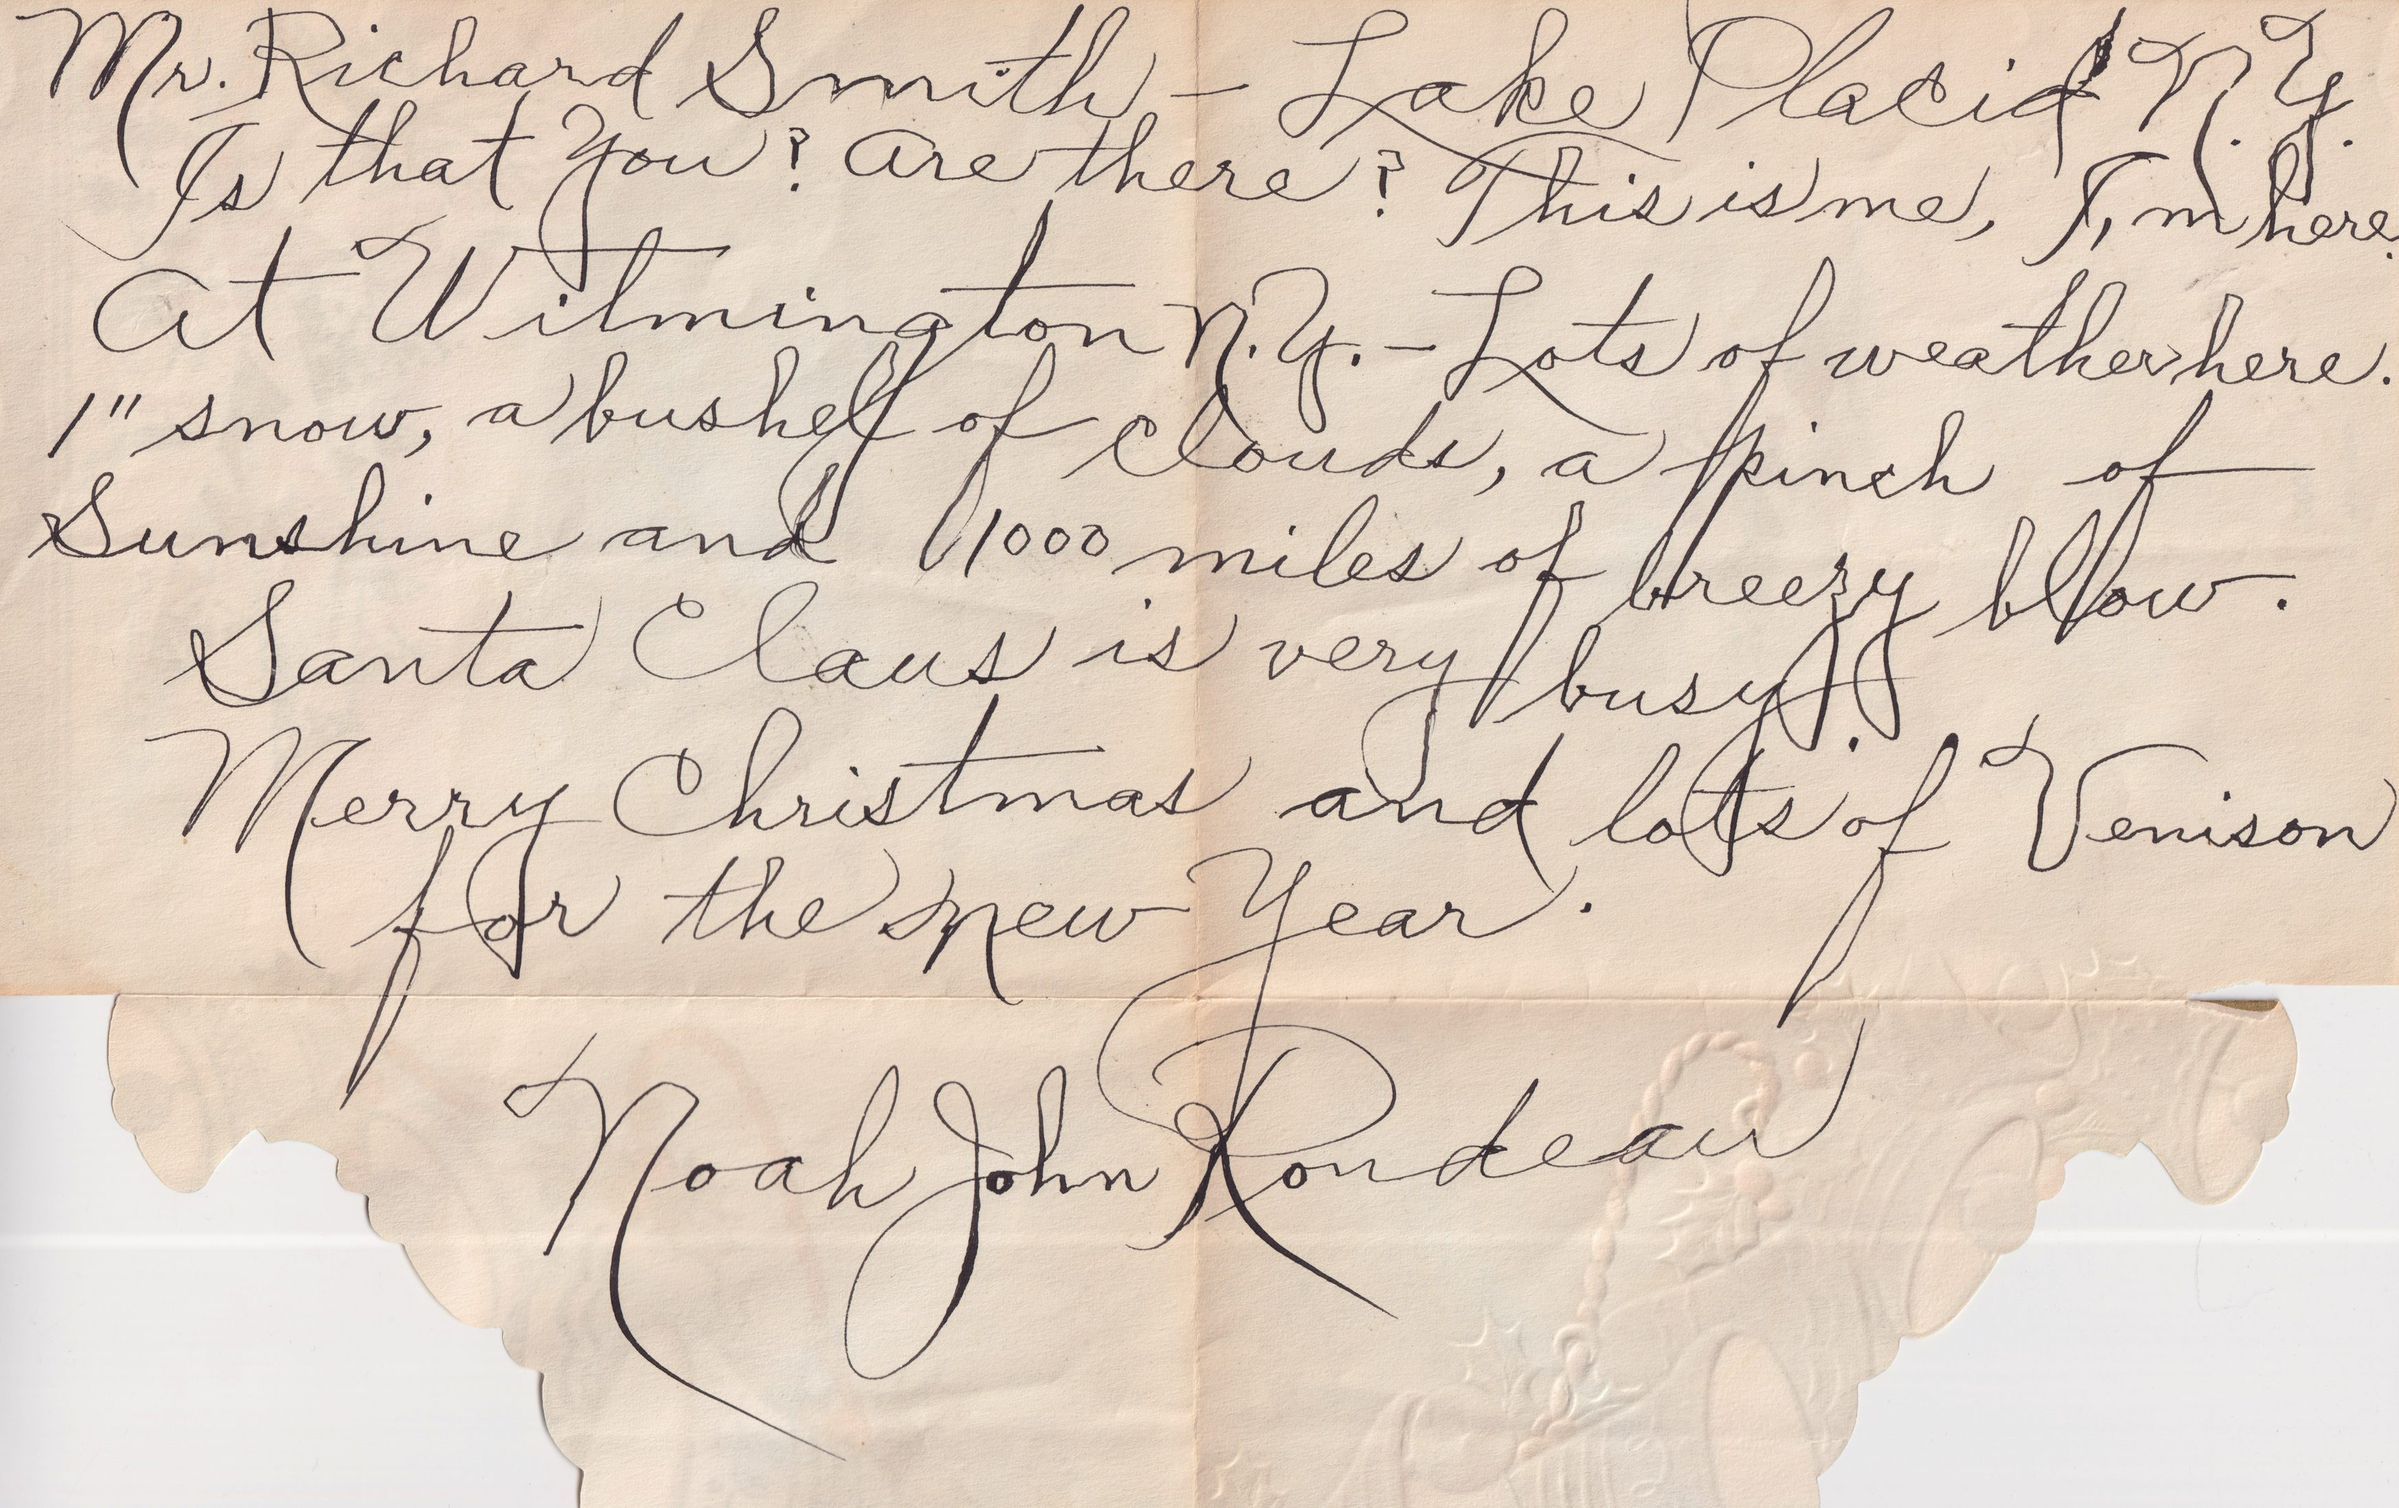 Mr. Richard Smith - Lake Placid N.Y.
Is that you? are there? This is me, I,m here.
at Wilmington N.Y. - Lots of weather here.
1" snow, a bushel of clouds, a pinch of
Sunshine and 1000 miles of breezy blow.
Santa Claus is very busy.
Merry Christmas and lots of Venison
for the new Year.
Noah John Rondeau